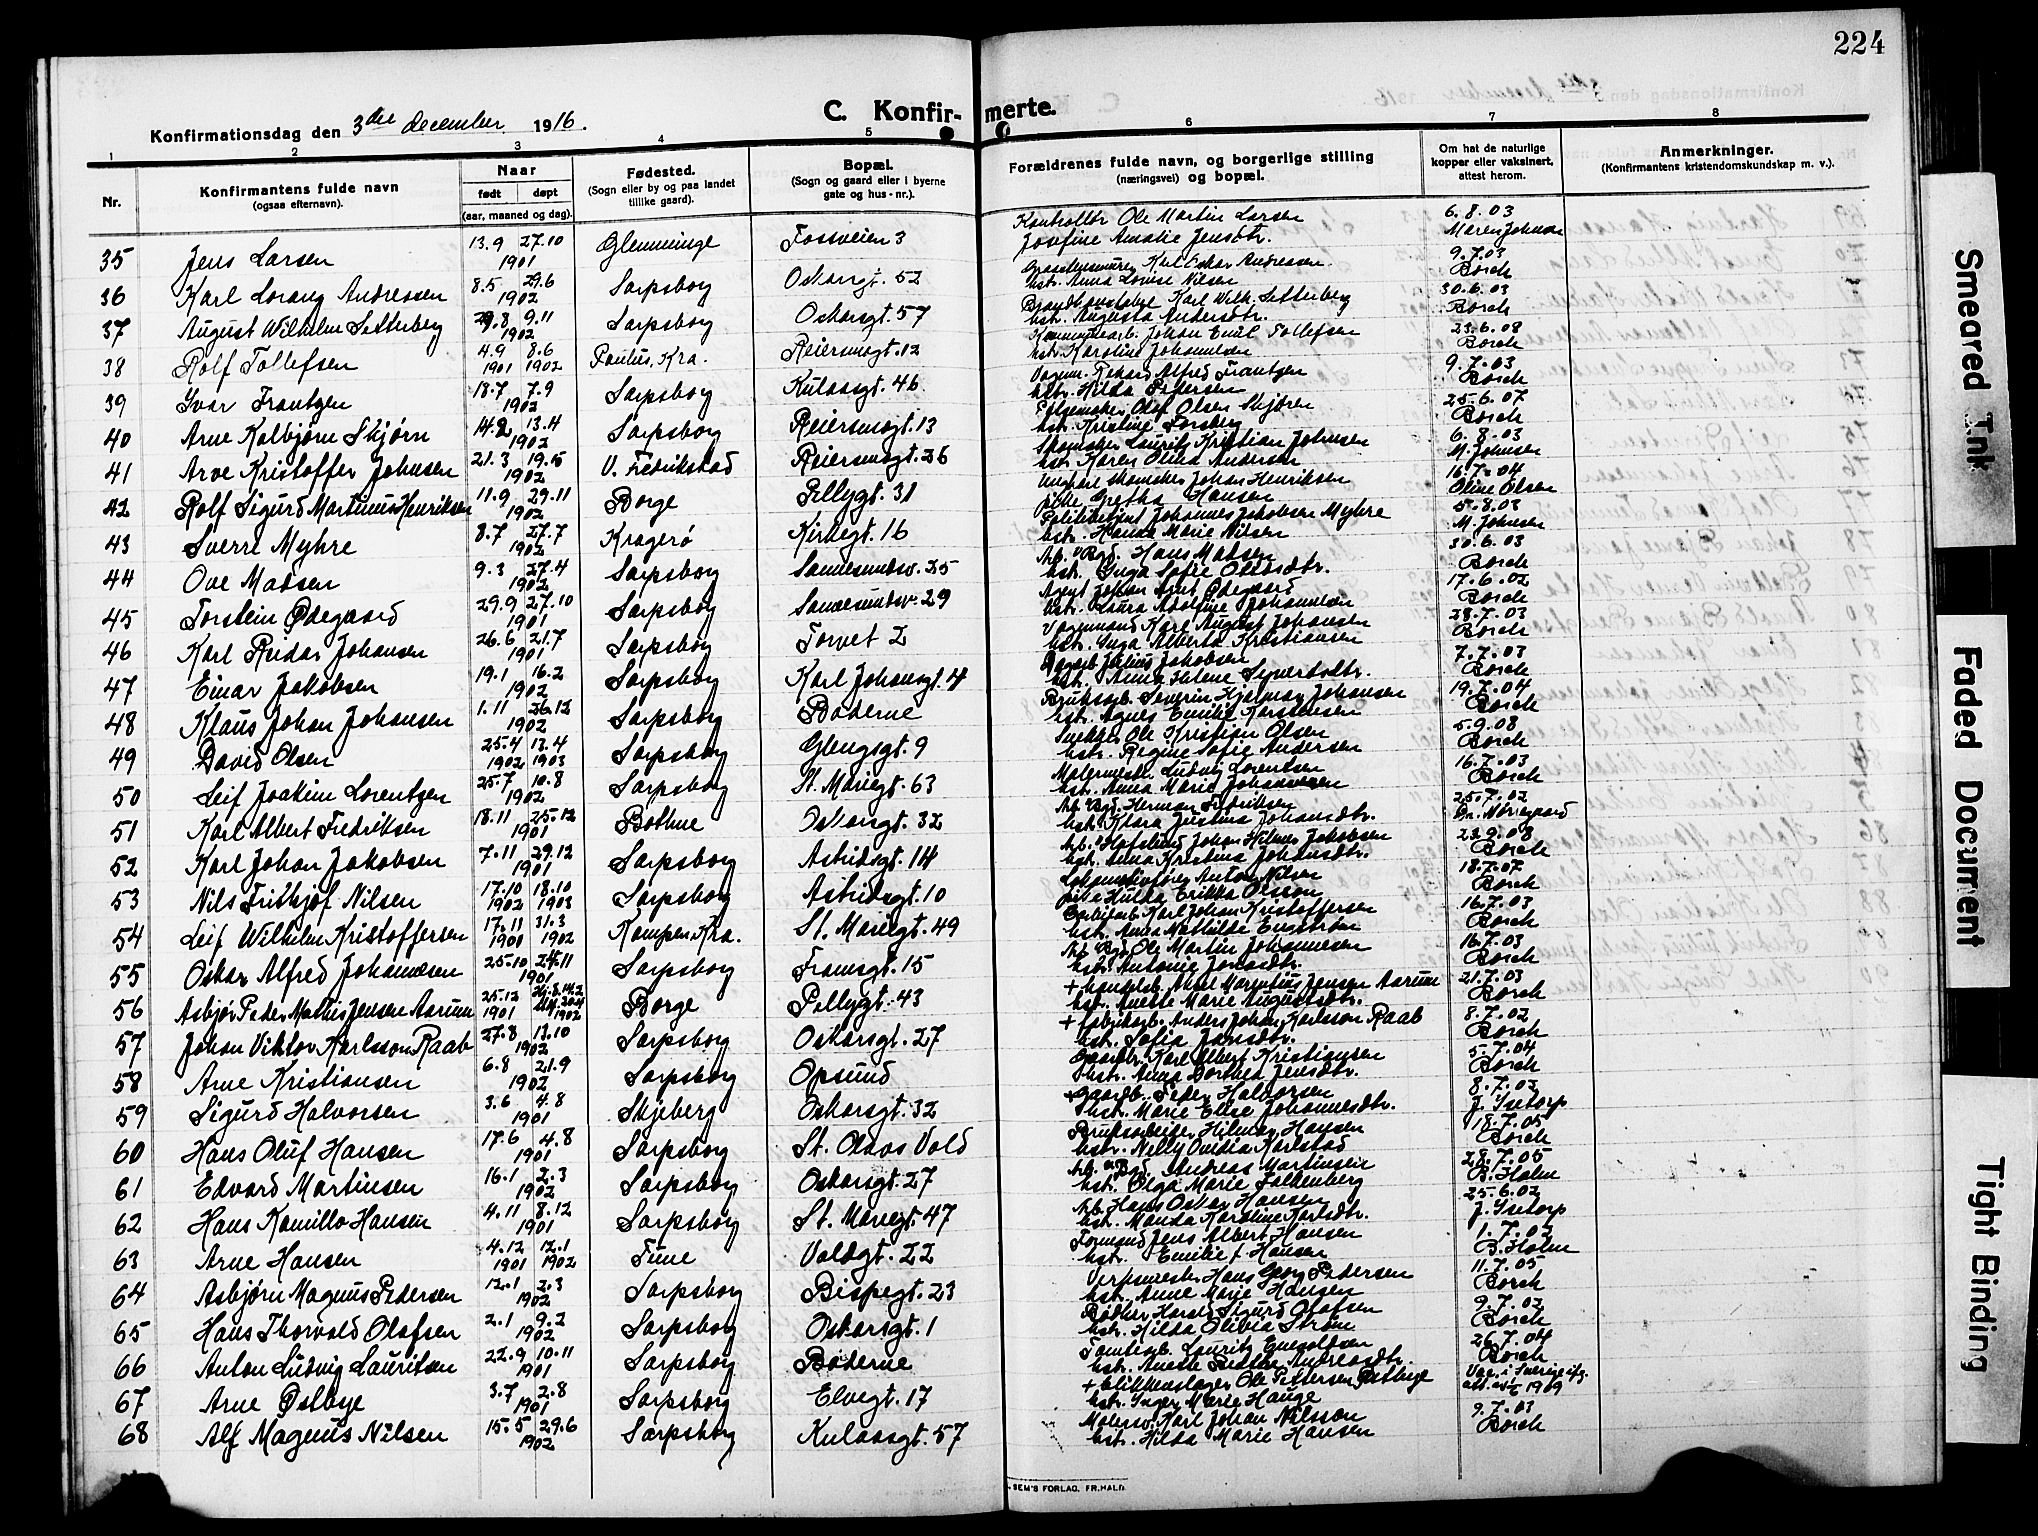 224
Konfirmationsdag den 3die december 1916.
C. Konfirmerte.
1 2 3 4 5 6 7 8
Nr.
Konfirmantens fulde navn
(ogsaa efternavn).
Naar
født døpt
(aar, maaned og dag).
Fødested.
(Sogn eller by og paa landet
tillike gaard).
Bopæl.
(Sogn og gaard eller i byerne
gate og hus-nr.).
Forældrenes fulde navn, og borgerlige stilling
(næringsvei) og bopæl.
Om hat de naturlige
kopper eller vaksinert,
attest herom.
Anmerkninger.
(Konfirmantens kristendomskundskap m. v.).
35 Jens Larsen 13.9 27.10 1901 Glemminge Fossveien 3 Kontrollør Ole Martin Larsen Josefine Amalie Jensdtr. 6.8.03 Maren Johnsen
36 Karl Lorang Andressen 8.5 29.6 1902 Sarpsborg Oskarsgt. 52 Karl Oskar Andressen hstr. Anna Lovise Nilsen 9.7.03 Borch
37 August Wilhelm Setterberg 29.8 9.11 1902 Sarpsborg Oskarsgt. 57 Karl Wilh. Setterberg hstr. Augusta Andersdtr. 30.6.03 Borch
38 Rolf Tollefsen 4.9 1901 8.6 1902 Paulus, Kra. Reiersensgt. 12 Kommunearb. Johan Emil Tollefsen hstr. Karoline Johannesen 23.6.08 Borch
39 Ivar Frantzen 18.7 7.9 1902 Sarpsborg Kulaasgt. 46 Vognm. Rikard Alfred Frantzen hstr. Hilda Petersen 9.7.03 Borch
40 Arne Kolbjørn Skjørn 14.2 13.4 1902 Sarpsborg Reiersensgt. 13 Olaf Olsen Skjøren hstr. Kristine Forsberg 25.6.07 Borch
41 Arve Kristoffer Johnsen 21.3 19.5 1902 V. Fredrikstad Reiersensgt. 26 Skomaker Lauritz Kristian Johnsen hstr. Karen Olina Andersen 6.8.03 M. Johnsen
42 Rolf Sigurd Martinus Henriksen 11.9 29.11 1902 Borge Pellygt. 31 Ungkarl skomaker Johan Henriksen pike Grethe Hansen 16.7.04 Oline Olsen
43 Sverre Myhre 8.7 27.7 1902 Kragerø Kirkegt. 16 Politibetjent Johannes Jakobsen Myhre hstr. Hanna Marie Nilsen 5.8.03 M. Johnsen
44 Ove Madsen 9.3 27.4 1902 Sarpsborg Sannesundsv. 25 Arb. v Bgd. Hans Madsen hstr. Inga Sofie Olausdtr. 30.6.03 Borch
45 Torstein Ødegaard 29.9 27.10 1901 Sarpsborg Sannesundsv. 29 Agent Johan Ødegaard hstr. Laura Adolfine Johannesen 17.6.02 Borch
46 Karl Reidar Johansen 26.6 21.7 1901 Sarpsborg Torvet 2 Vognmand Karl August Johansen hstr. Inga Alberta Kristiansen 28.7.03 Borch
47 Einar Jakobsen 19.1 16.2 1902 Sarpsborg Karl Johansgt. 4 Julius Jakobsen hstr. Anna Helene Syvertsdtr. 7.7.03 Borch
48 Klaus Johan Johansen 1.11 26.12 1902 Sarpsborg Boderne Bruksarb. Severin Hjelmar Johansen hstr. Agnes Emilie Karstensen 19.7.04 Borch
49 David Olsen 25.4 1902 13.4 1903 Sarpsborg Glengsgt. 9 Snekker Ole Kristian Olsen hstr. Regine Sofie Andersen 5.9.08 Borch
50 Leif Joakim Lorentzen 25.7 10.8 1902 Sarpsborg St. Mariegt. 63 Malermester Ludvig Lorentzen hstr. Anna Marie Johannesen 16.7.03 Borch
51 Karl Albert Fredriksen 18.11 25.12 1901 Bothne Oskarsgt. 32 Arb. Bgd. Herman Fredriksen hstr. Klara Justina Johansdtr. 25.7.02 Dr. Nørregaard
52 Karl Johan Jakobsen 7.11 29.12 1901 Sarpsborg Astridsgt. 14 Arb. v Hafslund Johan Hilmer Jakobsen hstr. Anna Kristina Johansdtr. 23.9.08 Borch
53 Nils Fritkjof Nilsen 17.10 1902 18.10 1903 Sarpsborg Astridsgt. 10 Lokomotivfører Anton Nilsen pike Hulda Erikka Olsson 18.7.07 Borch
54 Leif Wilhelm Kristoffersen 17.11 1900 31.3 1902 Kampen, Kra. St. Mariegt. 49 Karl Johan Kristoffersen hstr. Anna Mathilde Engstrøm 16.7.03 Borch
55 Oskar Alfred Johannesen 25.10 24.11 1901 Sarpsborg Framsgt. 15 Arb. Bgd. Ole Martin Johannesen hstr. Antonie Jonasdtr. 16.7.03 Borch
56 Asbjør Peder Mathis Jensen Aarum 25.12 1901 1902 Borge Pellygt. 43 + handelsb. Aksel Marentius Jensen Aarum hstr. Anette Marie Augustsdtr. 21.7.03 Borch
57 Johan Viktor Karlsson Raab 27.8 13.10 1902 Sarpsborg Oskarsgt. 27 + fabrikarb. Anders Johan Karlsson Raab hstr. Sofia Jansdtr. 8.7.02 Borch
58 Arne Kristiansen 6.8 21.9 1902 Sarpsborg Opsund Gaardbr. Karl Albert Kristiansen hstr. Anna Dorthea Jensdtr. 5.7.04 Borch
59 Sigurd Halvorsen 3.6 4.8 1901 Skjeberg Oskarsgt. 32 + gaardb. Peder Halvorsen hstr. Marie Elise Johannesdtr. 8.7.03 J. Isetorp
60 Hans Oluf Hansen 17.6 4.8 1901 Sarpsborg St. Olavs Vold Bruksarbeider Hilmar Hansen hstr. Nelly Ovidia Karlstad 18.7.05 Borch
61 Edvard Martinsen 16.1 2.3 1902 Sarpsborg Oskarsgt. 27 Arb. v Bgd. Andreas Martinsen hstr. Olga Marie Falkenberg 28.7.05 B. Holm
62 Hans Kamillo Hansen 4.11 8.12 1901 Sarpsborg St. Mariegt. 47 Arb. Hans Oskar Hansen hstr. Manda Karoline Karlsdtr. 25.6.02 J. Isetorp
63 Arne Hansen 4.12 1901 12.1 1902 Tune Voldgt. 22 Formand Jens Albert Hansen hstr. Emilie f. Hansen 1.7.03 B. Holm
64 Asbjørn Magnus Pedersen 12.1 2.3 1902 Sarpsborg Bispegt. 23 Verksmester Hans Georg Pedersen hstr. Anne Marie Hansen 11.7.05 Borch
65 Hans Thorvald Olafsen 2.1 9.2 1902 Sarpsborg Oskarsgt. 1 Bødker Harald Sigurd Olafsen hstr. Hilda Olivia Strøm 9.7.02 Borch
66 Anton Ludvig Lauritsen 22.9 10.11 1901 Sarpsborg Boderne Tomtearb. Lauritz Engvoldsen hstr. Anette Andreasdtr. 26.7.04 Borch
67 Arne Østbye 3.7 2.8 1901 Sarpsborg Elvegt. 17 + blikkenslager Ole Pettersen Østbye hstr. Inger Marie Hauge Vac. i Sverige 1909
68 Alf Magnus Nilsen 15.5 29.6 1902 Sarpsborg Kulaasgt. 57 Karl Johan Nilsson hstr. Hilda Marie Hansen 9.7.03 Borch
SEM'S FORLAG, FR.HALD.
Smeared Ink
Faded Document
Tight Binding